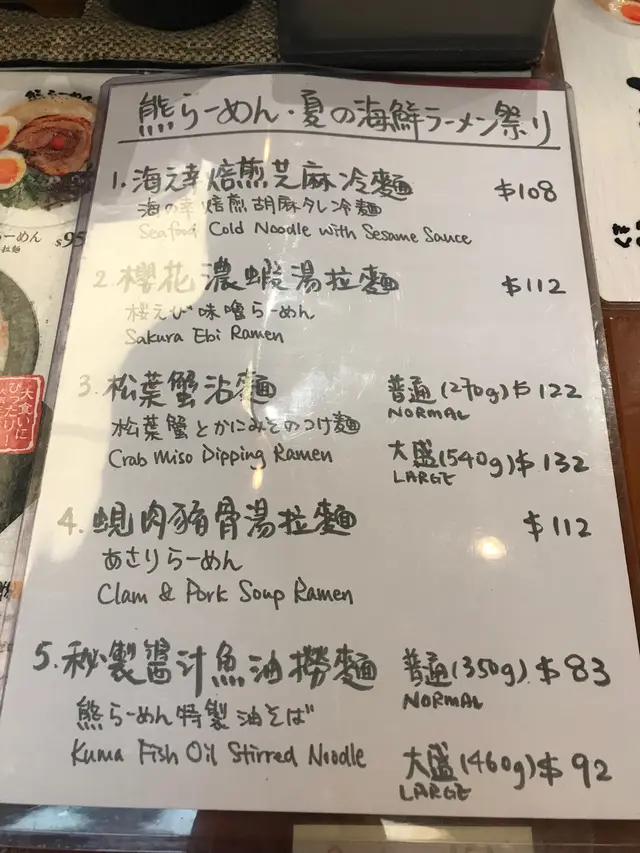 熊らーめん・夏の海鮮ラーメン祭り
1. 海之幸焙煎芝麻冷麵 $108
海の幸焙煎胡麻タレ冷麵
Seafood Cold Noodle with Sesame Sauce
2. 櫻花濃蝦湯拉麵 $112
桜えび味噌らーめん
Sakura Ebi Ramen
3. 松葉蟹沾麵 普通(270g) $122
NORMAL
松葉蟹とかにみそのつけ麵
大盛(540g) $132
Crab Miso Dipping Ramen LARGE
4. 蜆肉豬骨湯拉麵 $112
あさりらーめん
Clam & Pork Soup Ramen
5. 秘製醬汁魚油撈麵 普通(350g) $83
NORMAL
熊らーめん特製油そば
Kuma Fish Oil Stirred Noodle 大盛(460g) $92
LARGE
熊らーめん
らーめん $95
拉麵
大食いに
ぴったり!